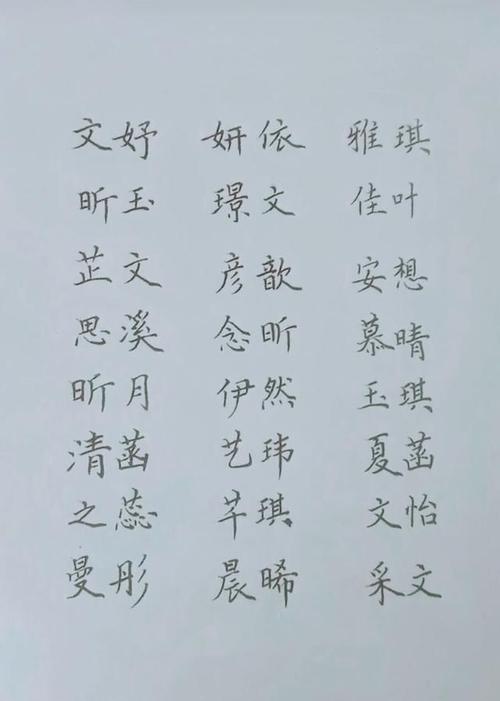 文妤 妍依 雅琪
昕玉 璟文 佳叶
芷文 彦歆 安想
思溪 念昕 慕晴
昕月 伊然 玉琪
清菡 艺玮 夏菡
之蕊 芊琪 文怡
曼彤 晨晞 采文